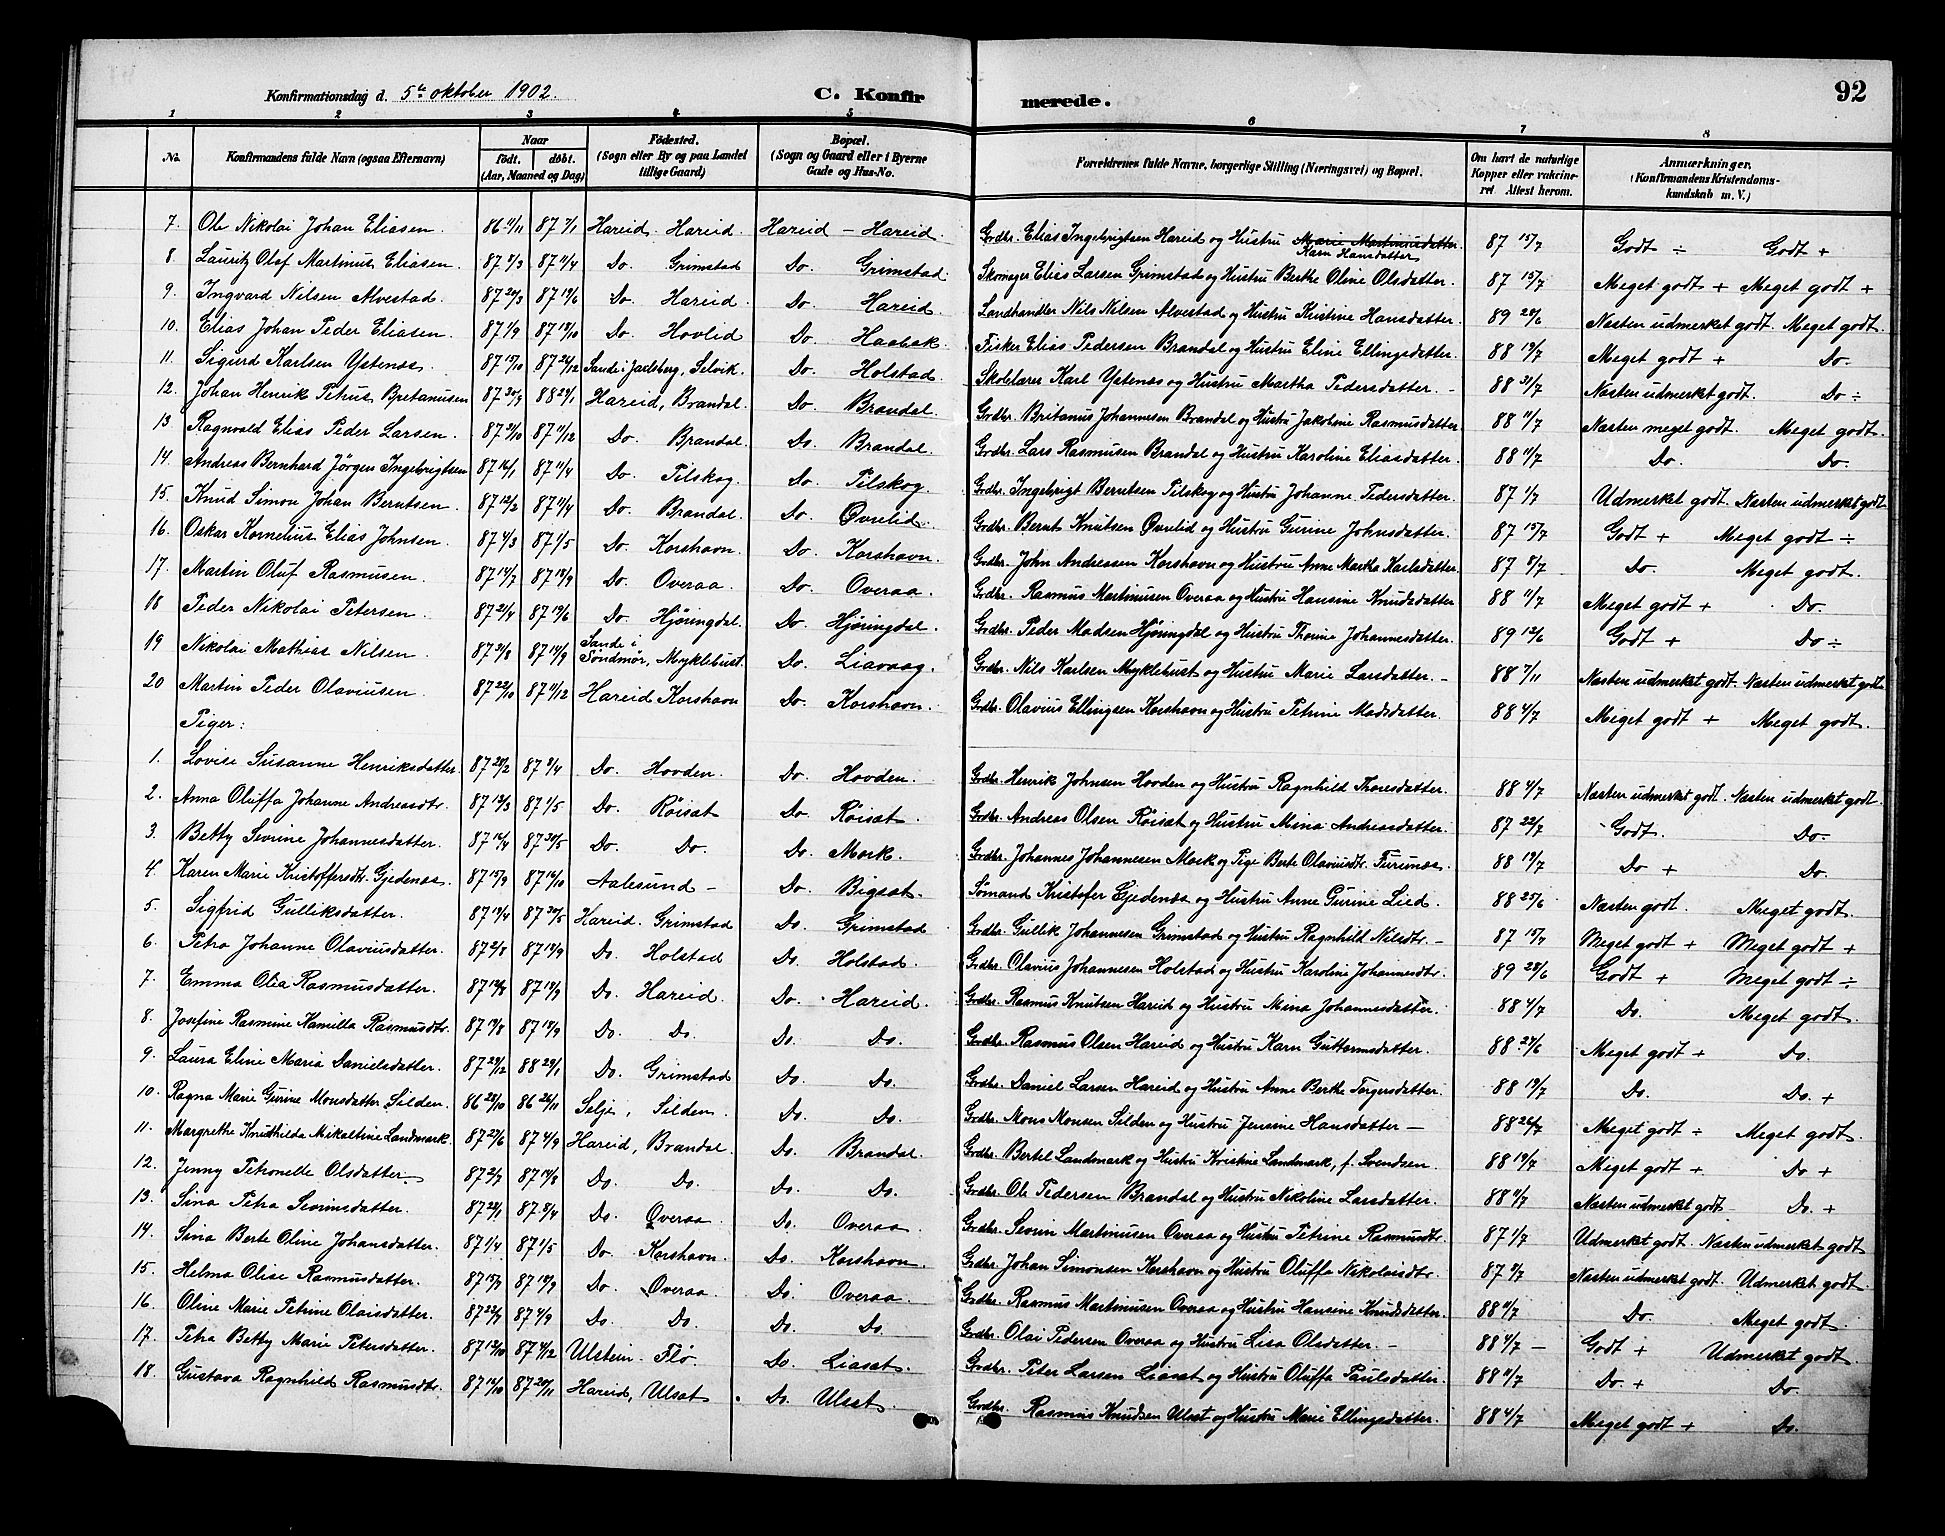 Konfirmationsdag d. 5te oktober 1902. C. Konfirmerede. 92
1 2 3 4 5 6 7 8
No. Konfirmandens fulde Navn (ogsaa Efternavn) Naar født. døbt. (Aar, Maaned og Dag) Fødested. (Sogn eller By og paa Landet tillige Gaard) Bopæl. (Sogn og Gaard eller i Byerne Gade og Hus-No. Forældrenes fulde Navne, borgerlige Stilling (Næringsvei) og Bopæl. Om havt de naturlige Kopper eller vakcineret. Attest herom. Anmærkninger. (Konfirmandens Kristendomskundskab m. V.)
7. Ole Nikolai Johan Eliasen. 87 7/1 Hareid Hareid. Hareid - Hareid. Grdbr. Elias Ingebrigtsen Hareid og Hustru Marie Martinusdatter Karn Hansdatter 87 15/7 Godt ÷ Godt +
8. Lauritz Olaf Martinus Eliasen. 87 11/4 Do. Grimstad Do. Grimstad. Skomager Elias Larsen Grimstad og Hustru Berthe Oline Olsdatter. 87 15/7 Meget godt + Meget godt +
9. Ingvard Nilsen Alvestad. 87 19/6 Do. Hareid. Do. Hareid. Landhandler Nils Nilsen Alvestad og Hustru Kristine Hansdatter. 89 28/6 Næsten udmerket godt. Meget godt
10. Elias Johan Peder Eliasen. 87 1/9 87 18/10 Do. Hovlid Do. Haabak Fisker Elias Pedersen Brandal og Hustru Eline Ellingsdatter. 88 19/7 Meget godt + Do.
11. Sigurd Karlsen Ystenæs. 87 17/10 87 26/12 Sande i Jarlsberg, Selvik. Do. Holstad. Skolelærer Karl Ystenæs og Hustru Martha Pedersdatter. - 88 31/7 Næsten udmerket godt. Do ÷
12. Johan Henrik Petrus Bretanusen 87 30/9 88 22/1 Hareid, Brandal. Do. Brandal. Grdbr. Britanus Johannesen Brandal og Hustru Jakobine Rasmusdatter 88 11/7 Næsten meget godt. Meget godt.
13. Ragnvald Elias Peder Larsen. 87 31/10 87 11/12 Do. Brandal. Do. Brandal. Grdbr. Lars Rasmussen Brandal og Hustru Karoline Eliasdatter. 88 11/7 Do. Do.
14. Andreas Bernhard Jørgen Ingebrigtsen 87 16/1 87 11/4 Do. Pilskog. Do. Pilskog. Grdbr. Ingebrigt Berntsen Pilskog og Hustru Johanne Pedersdatter. 87 1/7 Udmerket godt. Næsten udmerket godt
15. Knud Simon Johan Berntsen. 87 12/2 87 11/4 Do. Brandal. Do. Øvrelid. Grdbr. Bernt Knutsen Øvrelid og Hustru Gurine Johnsdatter. 87 15/7 Godt + Meget godt ÷
16. Oskar Kornelius Elias Johnsen. 87 4/3 87 1/5 Do. Korshavn. Do. Korshavn. Grdbr. John Andressen Korshavn og Hustru Anne Martha Karlsdatter 87 8/7 Do. Meget godt.
17. Martin Oluf Rasmusen. 87 14/7 87 18/9 Do. Overaa. Do. Overaa. Grdbr. Rasmus Martinusen Overaa og Hustru Hansine Knudsdatter 88 11/7 Meget godt + Do.
18 Peder Nikolai Petersen. 87 21/4 87 19/6 Do. Hjøringdal. Do. Hjøringdal. Grdbr. Peder Madsen Hjøringdal og Hustru Thorine Johannesdatter. 89 12/6 Godt + Do ÷
19 Nikolai Mathias Nilsen. 87 31/8 87 14/9 Sande i Søndmør, Myklebust. Do. Liavaag. Grdbr. Nils Karlsen Myklebust og Hustru Marie Larsdatter. - 88 7/11 Næsten udmerket godt. Næsten udmerket godt
20 Martin Peder Olaviusen. 87 22/10 87 4/12 Hareid Korshavn Do. Korshavn. Grdbr. Olavius Ellingsen Korshavn og Hustru Petrine Madsdatter. 88 4/7 Meget godt + Meget godt.
Piger:
1. Lovise Susanne Henriksdatter 87 28/2 Do. Hovden. Do. Hovden. Grdbr. Henrik Johnsen Hovden og Hustru Ragnhild Thoresdatter. 88 4/7 Næsten udmerket godt. Næsten udmerket godt.
2. Anna Oluffa Johanne Andreasdtr. 87 19/3 87 1/5 Do. Røisæt Do. Røisæt. Grdbr. Andreas Olsen Røisæt og Hustru Mina Andreasdatter. 87 22/7 Godt. Do.
3. Betty Severine Johannesdatter. 87 16/4 87 30/5 Do. Do. Do. Mork. Grdbr. Johannes Johannesen Mork og Pige Berte Olaviusdtr. Furunæs. 88 19/7 Do + Do.
4. Karen Marie Kristoffersdtr. Gjedenæs. 87 15/9 87 16/10 Aalesund - Do. Bigsæt. Sømand Kristofer Gjedenæs og Hustru Anne Gurine Lied. 88 25/6 Næsten godt. Meget godt.
5. Sigfrid Gulliksdatter. 87 19/4 87 30/5 Hareid. Grimstad Do. Grimstad Grdbr. Gullik Johannesen Grimstad og Hustru Ragnhild Nilsdtr. - 87 15/7 Meget godt + Meget godt +
6. Petra Johanne Olaviusdatter. 87 2/8 87 18/9 Do. Holstad Do. Holstad. Grdbr. Olavius Johannesen Holstad og Hustru Karoline Johannesdtr. 89 28/6 Godt + Meget godt ÷
7. Emma Olia Rasmusdatter. 87 18/9 Do. Hareid. Do. Hareid. Grdbr. Rasmus Knutsen Hareid og Hustru Mina Johannesdatter. 88 4/7 Do. Meget godt.
8. Josefine Rasmine Kamilla Rasmusdtr. 87 18/9 Do. Do. Do. Do. Grdbr. Rasmus Olsen Hareid og Hustru Karn Guttormsdatter. 88 27/6 Meget godt + Do.
9. Laura Eline Maria Danielsdatter. 87 29/12 88 29/1 Do. Grimstad Do. Do. Grdbr. Daniel Larsen Hareid og Hustru Anne Berthe Torgersdatter. 88 19/7 Do. Do. +
10. Ragna Marie Gurine Monsdatter Silden. 86 28/10 86 26/11 Selje, Silden. Do. Do. Grdbr. Mons Monsen Silden og Hustru Jensine Hansdatter - 88 26/7 Meget godt ÷ Meget godt.
11. Margrethe Knudhilda Mikaline Landmark. 87 23/6 87 4/9 Hareid, Brandal. Do. Brandal. Grdbr. Bertel Landmark og Hustru Kristine Landmark, f. Svendsen. 88 19/7 Meget godt + Do +
12. Jenny Petronelle Olsdatter Do. Do. Do. Do. Grdbr. Ole Pedersen Brandal og Hustru Nikoline Larsdatter. 88 11/7 Næsten udmerket godt Do. +
13. Sina Petra Severinsdatter. Do. Overaa. Do. Overaa Grdbr. Severin Martinusen Overaa og Hustru Petrine Rasmusdtr. 87 1/7 Udmerket godt. Næsten udmerket godt
14. Sina Berte Oline Johansdatter. 87 1/4 87 1/5 Do. Korshavn. Do. Korshavn. Grdbr. Johan Simonsen Korshavn og Hustru Oluffa Nikolaisdtr. Næsten udmerket godt. Udmerket godt.
15. Helma Olise Rasmusdatter. 87 18/9 Do. Overaa. Do. Overaa. Grdbr. Rasmus Martinusen Overaa og Hustru Hansine Knudsdatter. 88 11/7 Do. Meget godt.
16. Oline Marie Petrine Olaisdatter. 87 4/9 Do. Do. Do. Do. Grdbr. Olai Pedersen Overaa og Hustru Lisa Olsdatter. - 88 4/7 - Godt + Udmerket godt.
17. Petra Betty Marie Petersdatter. 87 4/12 Ulstein. Flø Do. Liasæt. Grdbr. Peter Larsen Liasæt og Hustru Oluffa Paulsdatter. 88 11/7 Do. + Do.
18. Gustava Ragnhild Rasmusdtr. 87 14/10 87 20/11 Hareid, Ulsæt Do. Ulsæt. Grdbr. Rasmus Knudsen Ulset og Hustru Marie Ellingsdatter. 88 4/7 Meget godt + Do.